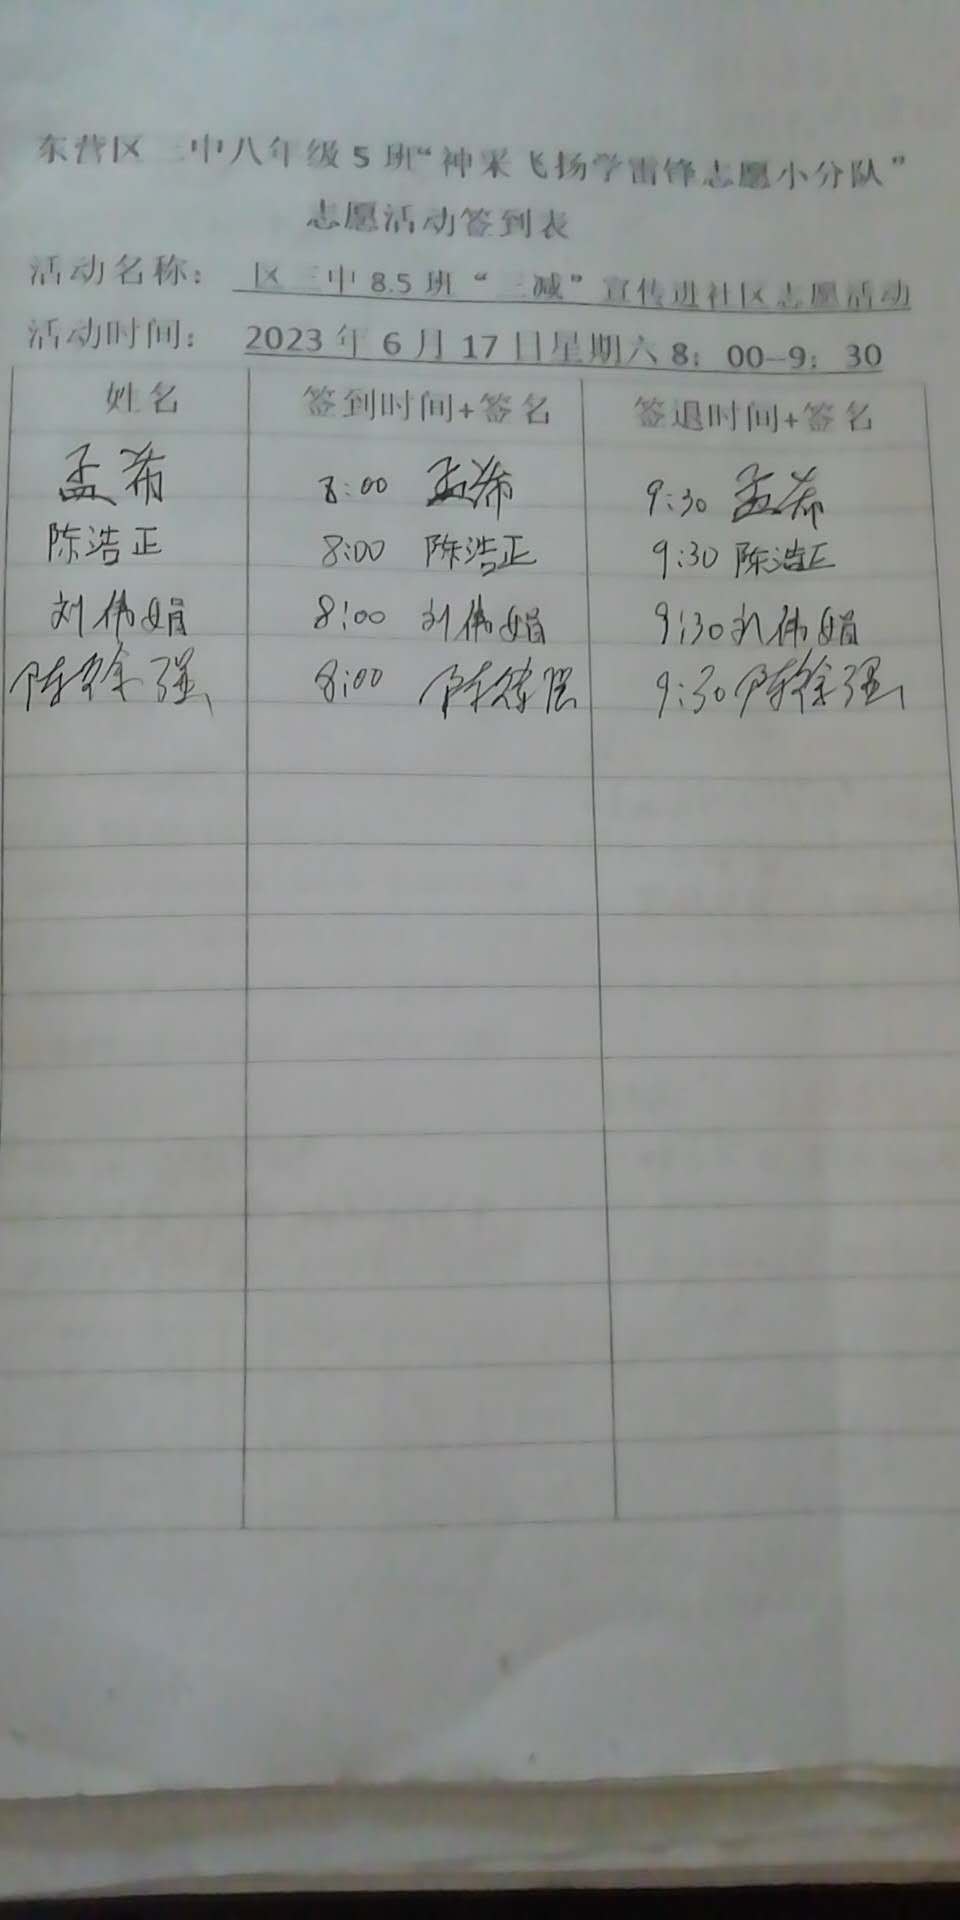 东营区三中八年级5班“神采飞扬学雷锋志愿小分队”
志愿活动签到表
活动名称： 区三中8.5班“三减”宣传进社区志愿活动
活动时间： 2023年6月17日星期六8：00--9：30
姓名 签到时间+签名 签退时间+签名
孟希 8:00 孟希 9:30 孟希
陈浩正 8:00 陈浩正 9:30 陈浩正
刘伟娟 8:00 刘伟娟 9:30 刘伟娟
陈徐强 8:00 陈徐强 9:30 陈徐强